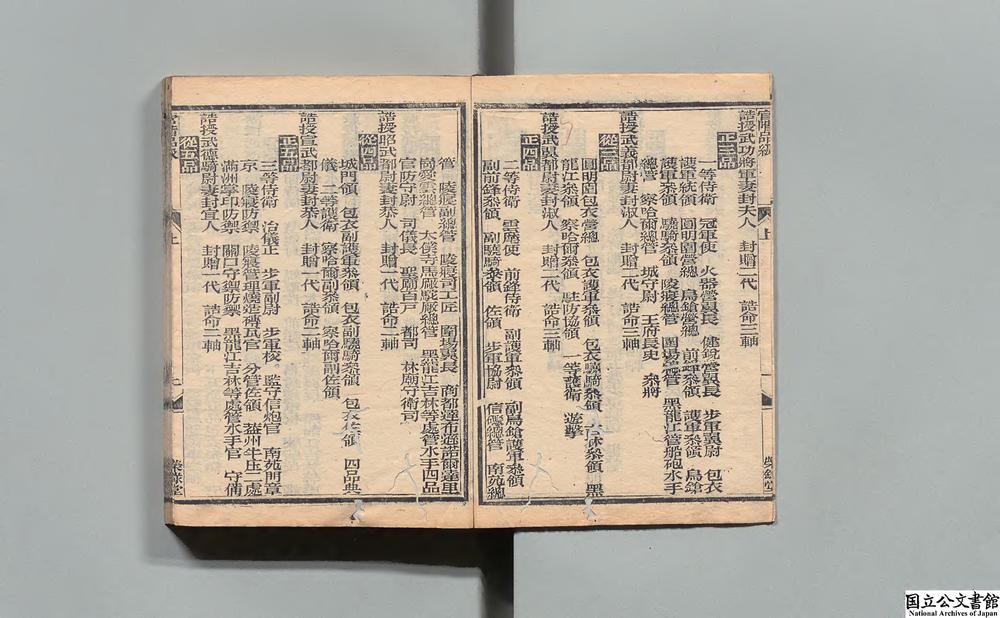 官階品級　上　榮錄堂
誥授武功將軍妻封夫人　封贈二代　誥命三軸
正三品
一等侍衛　冠軍使　火器營翼長　健銳營翼長　步軍翼尉　包衣
護軍統領　圓明園營總　鳥鎗營總　前鋒參領　護軍參領　鳥鎗
護軍參領　驍騎參領　陵寢總管　圍場總管　黑龍江管船砲水手
總管　察哈爾總管　城守尉　王府長史　參將
誥授武義都尉妻封淑人　封贈二代　誥命三軸
從三品
圓明園包衣營總　包衣護軍參領　包衣驍騎參領　吉林參領　黑
龍江參領　察哈爾參領　駐防協領　一等護衛　遊擊
誥授武翼都尉妻封淑人　封贈二代　誥命三軸
正四品
二等侍衛　雲麾使　前鋒侍衛　副護軍參領　副鳥鎗護軍參領
副前鋒參領　副驍騎參領　佐領　步軍協尉　信礮總管　南苑總
管　陵寢副總管　陵寢司工匠　圍場翼長　商都達布遜諾爾達里
岡愛雲總管　太僕寺馬廠駝廠總管　黑龍江吉林等處管水手四品
官防守尉　司儀長　聖廟百戶　都司　林廟守衛司
誥授昭武都尉妻封恭人　封贈一代　誥命二軸
從四品
城門領　包衣副護軍參領　包衣副驍騎參領　包衣佐領　四品典
儀　二等護衛　察哈爾副參領　察哈爾副佐領
誥授宣武都尉妻封恭人　封贈一代　誥命二軸
正五品
三等侍衛　治儀正　步軍副尉　步軍校　監守信炮官　南苑門章
京　陵寢防禦　陵寢管理燒造磚瓦官　分管佐領　蓋州牛庄二處
滿洲掌印防禦　關口守禦防禦　黑龍江吉林等處管水手官　守備
誥授武德騎尉妻封宜人　封贈一代　誥命二軸
從五品
官階品級　上　榮錄堂
国立公文書館
National Archives of Japan